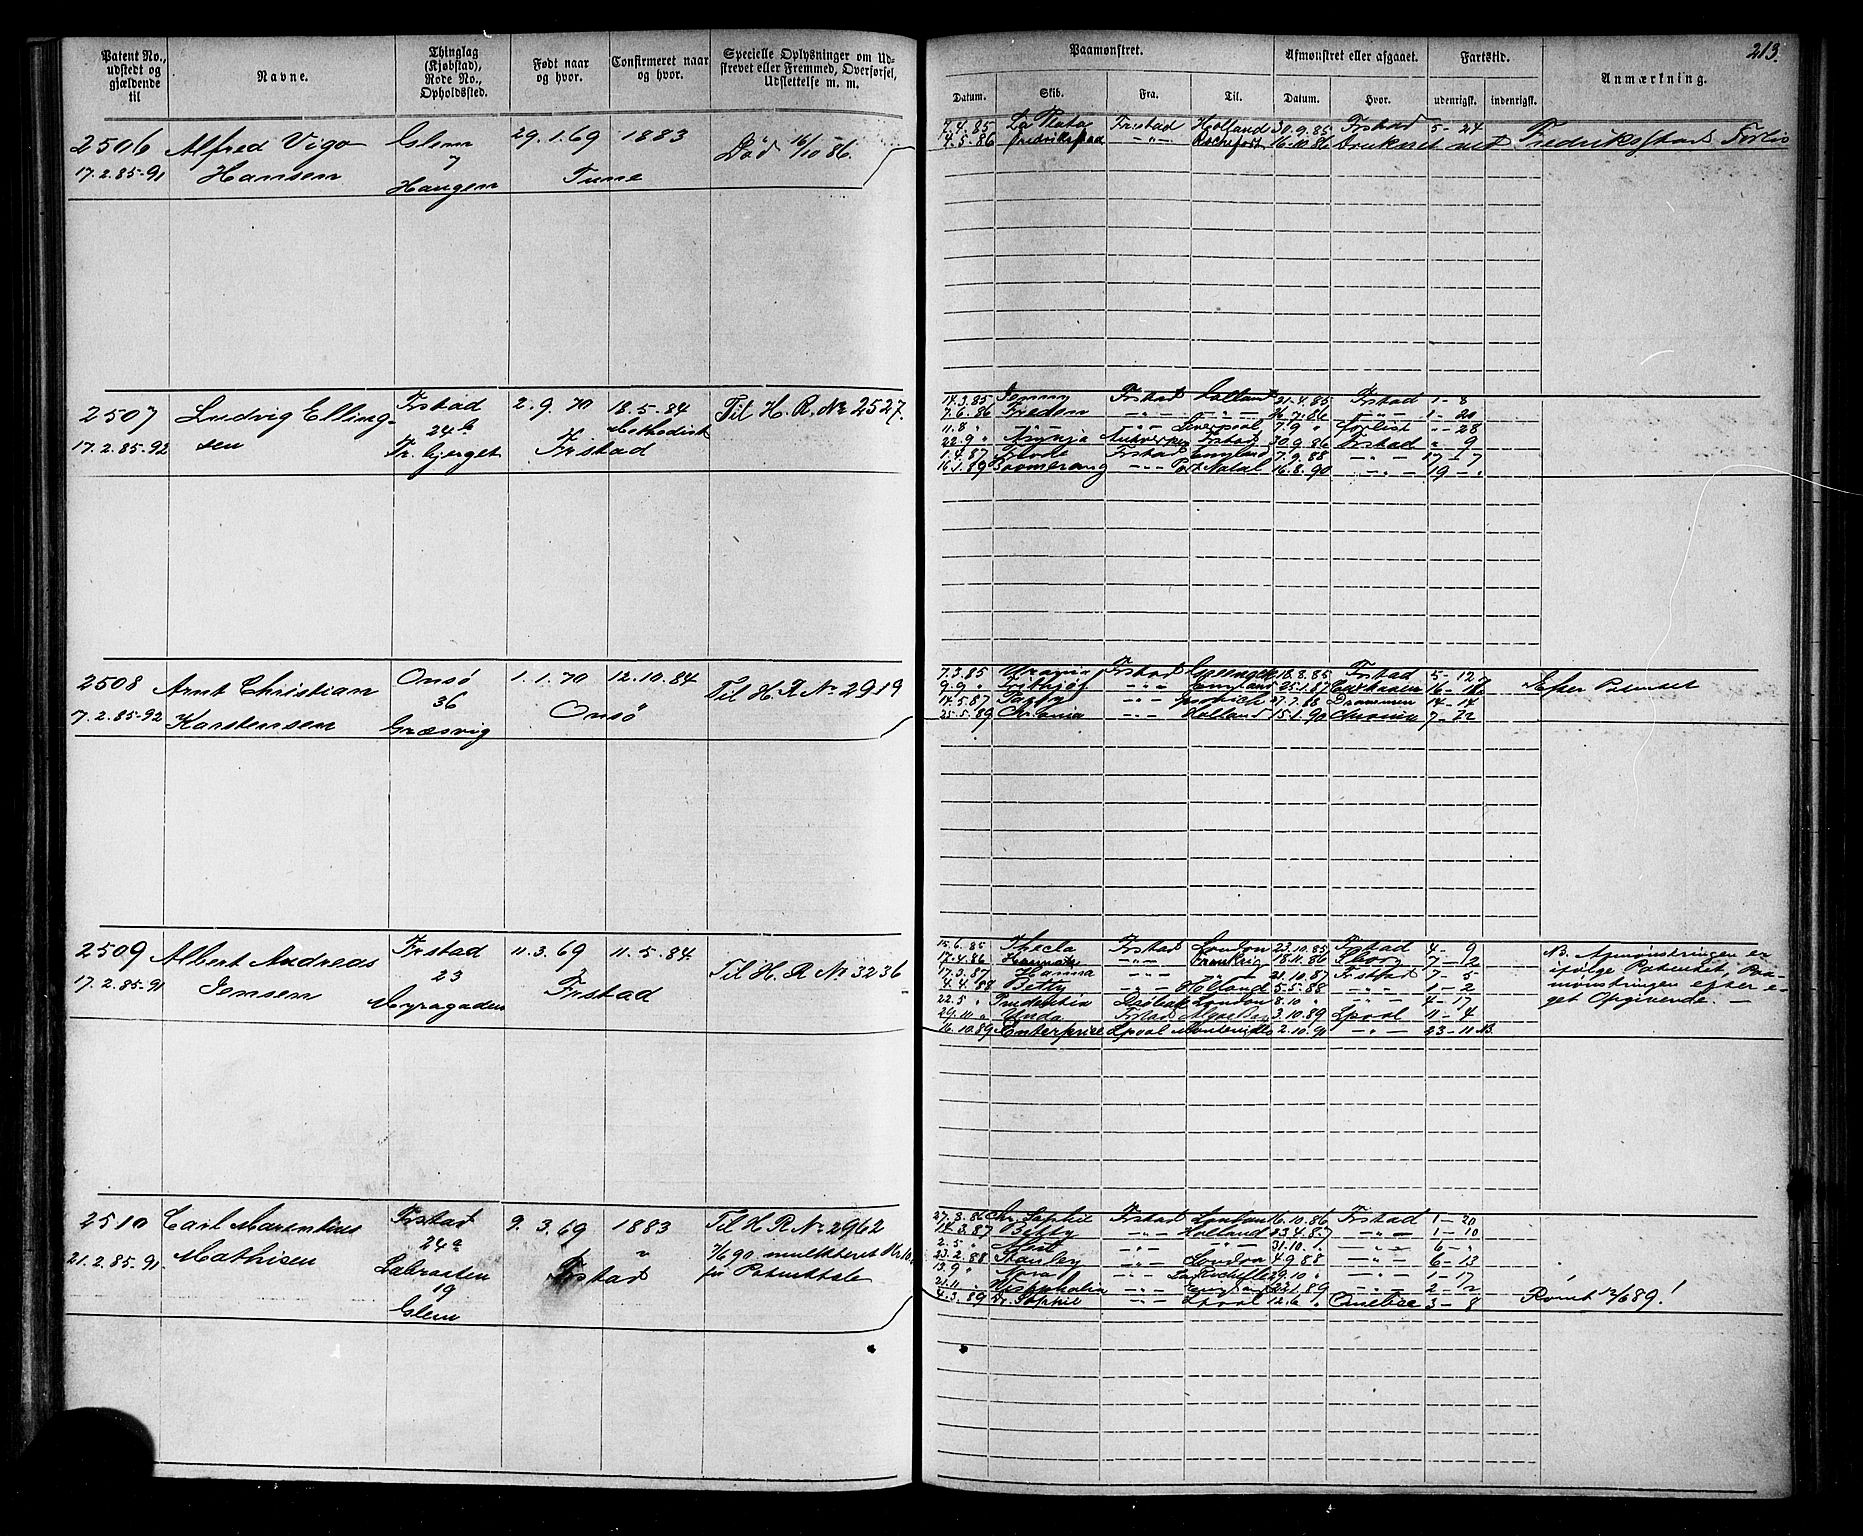 Patent No., udstedt og gjældende til
Navne.
Thinglag (Kjøbstad), Rode No., Opholdssted.
Født naar og hvor.
Confirmeret naar og hvor.
Specielle Oplysninger om Udstrevet eller Fremmed, Overførsel, Udslettelse m. m.
Paamønstret.
Afmønstret eller afgaaet.
Fartstid.
Anmærkning.
213.
Datum. Skib. Fra. Til. Datum. Hvor. udenrigst. indenrigst.
2506 Alfred Vigo Glem 29.1.69 1883 Død 16/10 86.
17.2.85-91 Hansen 7 Tune
Haugen
7.4.85 La Plata Frstad Holland 30.9.85 Frstad 5-24
7.5.86 Fredrikstad -"- Rochefort 16.10.86 Druknet ved Fredrikstads Forlis
2507 Ludvig Elling- Frstad 2.9.70 18.5.84 Til H.R. No 2527.
17.2.85-92 sen 24b Frstad Methodist
Fr. bjerget
14.3.85 Jenny Frstad Holland 21.4.85 Frstad 1-8
7.6.86 -"- -"- 26.7.86 -"- 1-20
11.8 " -"- -"- Liverpool 7.9 " Forlist "-28
22.9 " Antverpen Frstad 30.9.86 Frstad "-9
1.4.87 Frstad England 7.9.88 -"- 17-7
16.1.89 Boomerang -"- Port Natal 16.8.90 -"- 19-"
2508 Arnt Christian Onsø 1.1.70 12.10.84 Til H.R. No 2919
17.2.85-92 Karstensen 36 Onsø
Græsvig
7.3.85 Urania Frstad 18.8.85 Frstad 5-12
9.9 " Frithjof -"- England 25.1.87 Cuxhaven 16-16 Efter Patentet
14.5.87 -"- Ipswich 27.7.88 Drammen 14-14
25.5.89 -"- Holland 15.1.90 Chrania 7-22
2509 Albert Andreas Frstad 11.3.69 11.5.84 Til H.R. No 3236
17.2.85-91 Jensen 23 Frstad
Myragaden
15.6.85 Thecla Frstad London 23.10.85 Frstad 4-9
17.4.86 -"- Frankrig 18.11.86 7-2
17.3.87 Hanna -"- -"- 21.10.87 Frstad 7-5
4.4.88 Betty -"- Holland 5.5.88 -"- 1-2
22.5 " Prudentia London 8.10 " -"- 4-17
29.11 " Unda Frstad 3.10.89 Lpool 11-4
16.10.89 Enterprise Lpool Montevideo 2.10.91 -"- 23-11 NB.
NB. Afmønstringen er
ifølge Patentet, Paa-
mønstringen efter e-
get Opgivende. —
2510 Carl Marentius Frstad 9.3.69 1883 Til H.R. No 2962
21.2.85-91 Mathisen 24a Frstad " 7/6 90 mulkteret Kr 10.
Labraaten for Patenttab
19
Glem
27.3.86 Chr. Sophie Frstad London 16.10.86 Frstad 1-20
14.3.87 Betty -"- Holland 23.4.87 -"- 1-10
2.5 " -"- -"- 31.10 " -"- 6-"
23.2.88 Stanley -"- London 4.9.88 -"- 6-13
13.9 " -"- La Rochelle 29.10 " -"- 1-17
21.11 " Westphalia -"- England 23.1.89 -"- 2-2
4.3.89 Sophie -"- Lpool 12.6 " 3-8 Rømt 12/6 89!